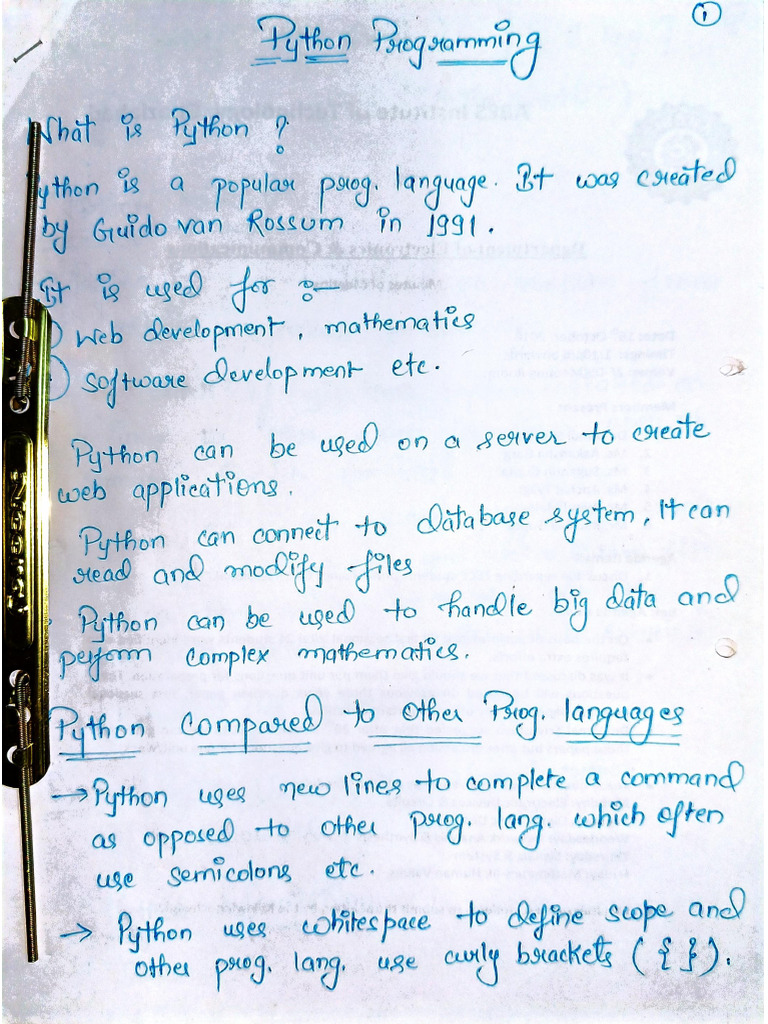 1
Python Programming
What is Python ?
ython is a popular prog. language. It was created
by Guido van Rossum in 1991.
It is used for :-
) Web development, mathematics
) Software development etc.
Python can be used on a server to create
web applications.
Python can connect to database system, It can
read and modify files
Python can be used to handle big data and
perform complex mathematics.
Python compared to other Prog. languages
→ Python uses new lines to complete a command
as opposed to other prog. lang. which often
use semicolons etc.
→ Python uses whitespace to define scope and
other prog. lang. use curly brackets ({ }).